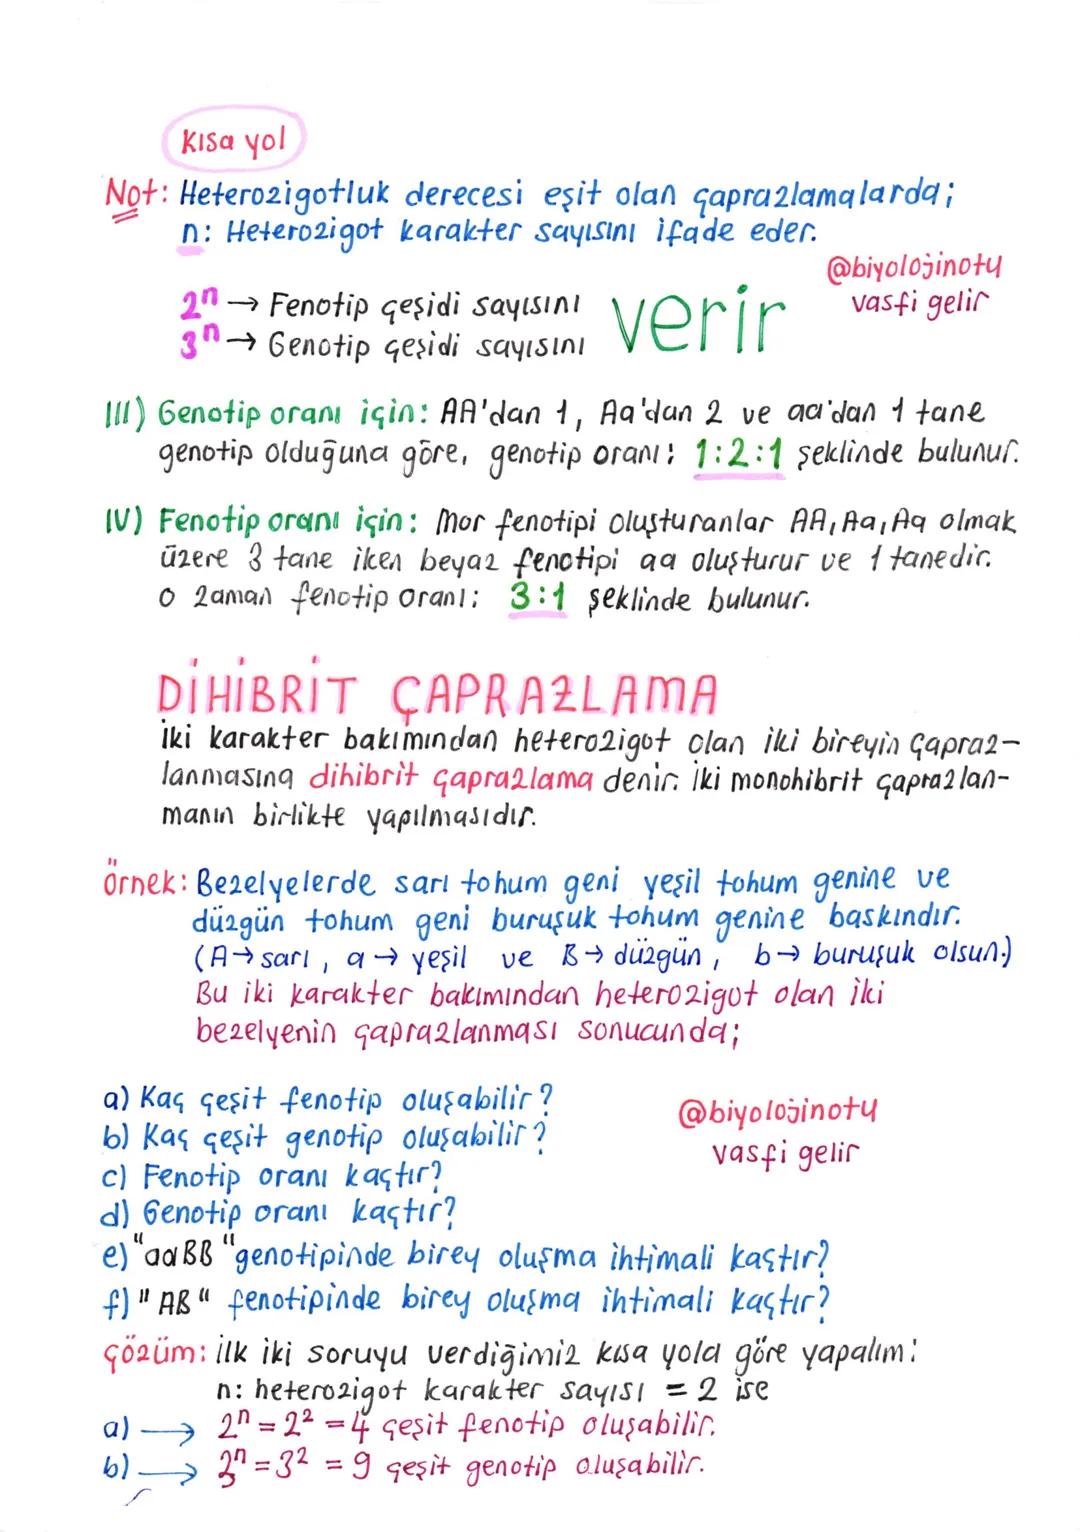 Kısa yol
Not: Heterozigotluk derecesi eşit olan çaprazlamalarda;
n: Heterozigot karakter sayısını ifade eder.
@biyolojinotu
vasfi gelir
2ⁿ → Fenotip çeşidi sayısını
3ⁿ → Genotip çeşidi sayısını
verir
III) Genotip oranı için: AA'dan 1, Aa'dan 2 ve aa'dan 1 tane
genotip olduğuna göre, genotip oranı: 1:2:1 şeklinde bulunur.
IV) Fenotip oranı için: Mor fenotipi oluşturanlar AA, Aa, Aa olmak
üzere 3 tane iken beyaz fenotipi aa oluşturur ve 1 tanedir.
O zaman fenotip oranı: 3:1 şeklinde bulunur.
DİHİBRİT ÇAPRAZLAMA
İki karakter bakımından heterozigot olan iki bireyin çapraz-
lanmasına dihibrit çaprazlama denir. İki monohibrit çaprazlan-
manın birlikte yapılmasıdır.
Örnek: Bezelyelerde sarı tohum geni yeşil tohum genine ve
düzgün tohum geni buruşuk tohum genine baskındır.
(A→ sarı, a→ yeşil ve B→ düzgün, b→ buruşuk olsun.)
Bu iki karakter bakımından heterozigot olan iki
bezelyenin çaprazlanması sonucunda;
a) Kaç çeşit fenotip oluşabilir?
b) Kaç çeşit genotip oluşabilir?
c) Fenotip oranı kaçtır?
d) Genotip oranı kaçtır?
@biyolojinotu
vasfi gelir
e) "aaBB" genotipinde birey oluşma ihtimali kaçtır?
f) "AB" fenotipinde birey oluşma ihtimali kaçtır?
Çözüm: İlk iki soruyu verdiğimiz kısa yola göre yapalım:
n: heterozigot karakter sayısı = 2 ise
a) → 2ⁿ = 2² = 4 çeşit fenotip oluşabilir.
b) → 3ⁿ = 3² = 9 çeşit genotip oluşabilir.